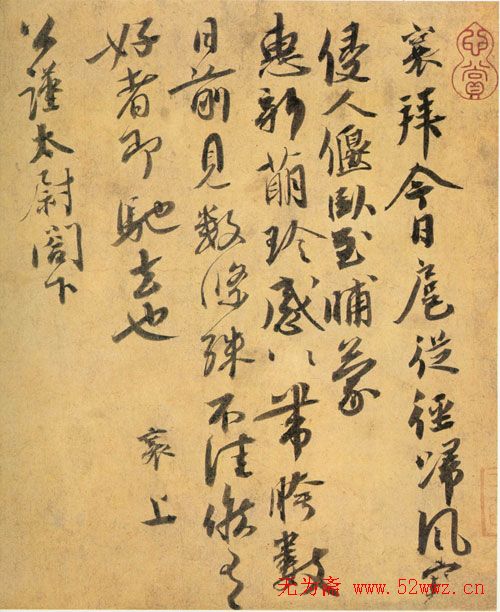 襄拜今日扈從徑歸風寒
侵人偃臥至晡蒙
惠新萌珍感〻帶胯數
日前見數條殊不佳候有
好者即馳去也
襄上
公謹太尉閤下
无为斋 www.52wwz.cn